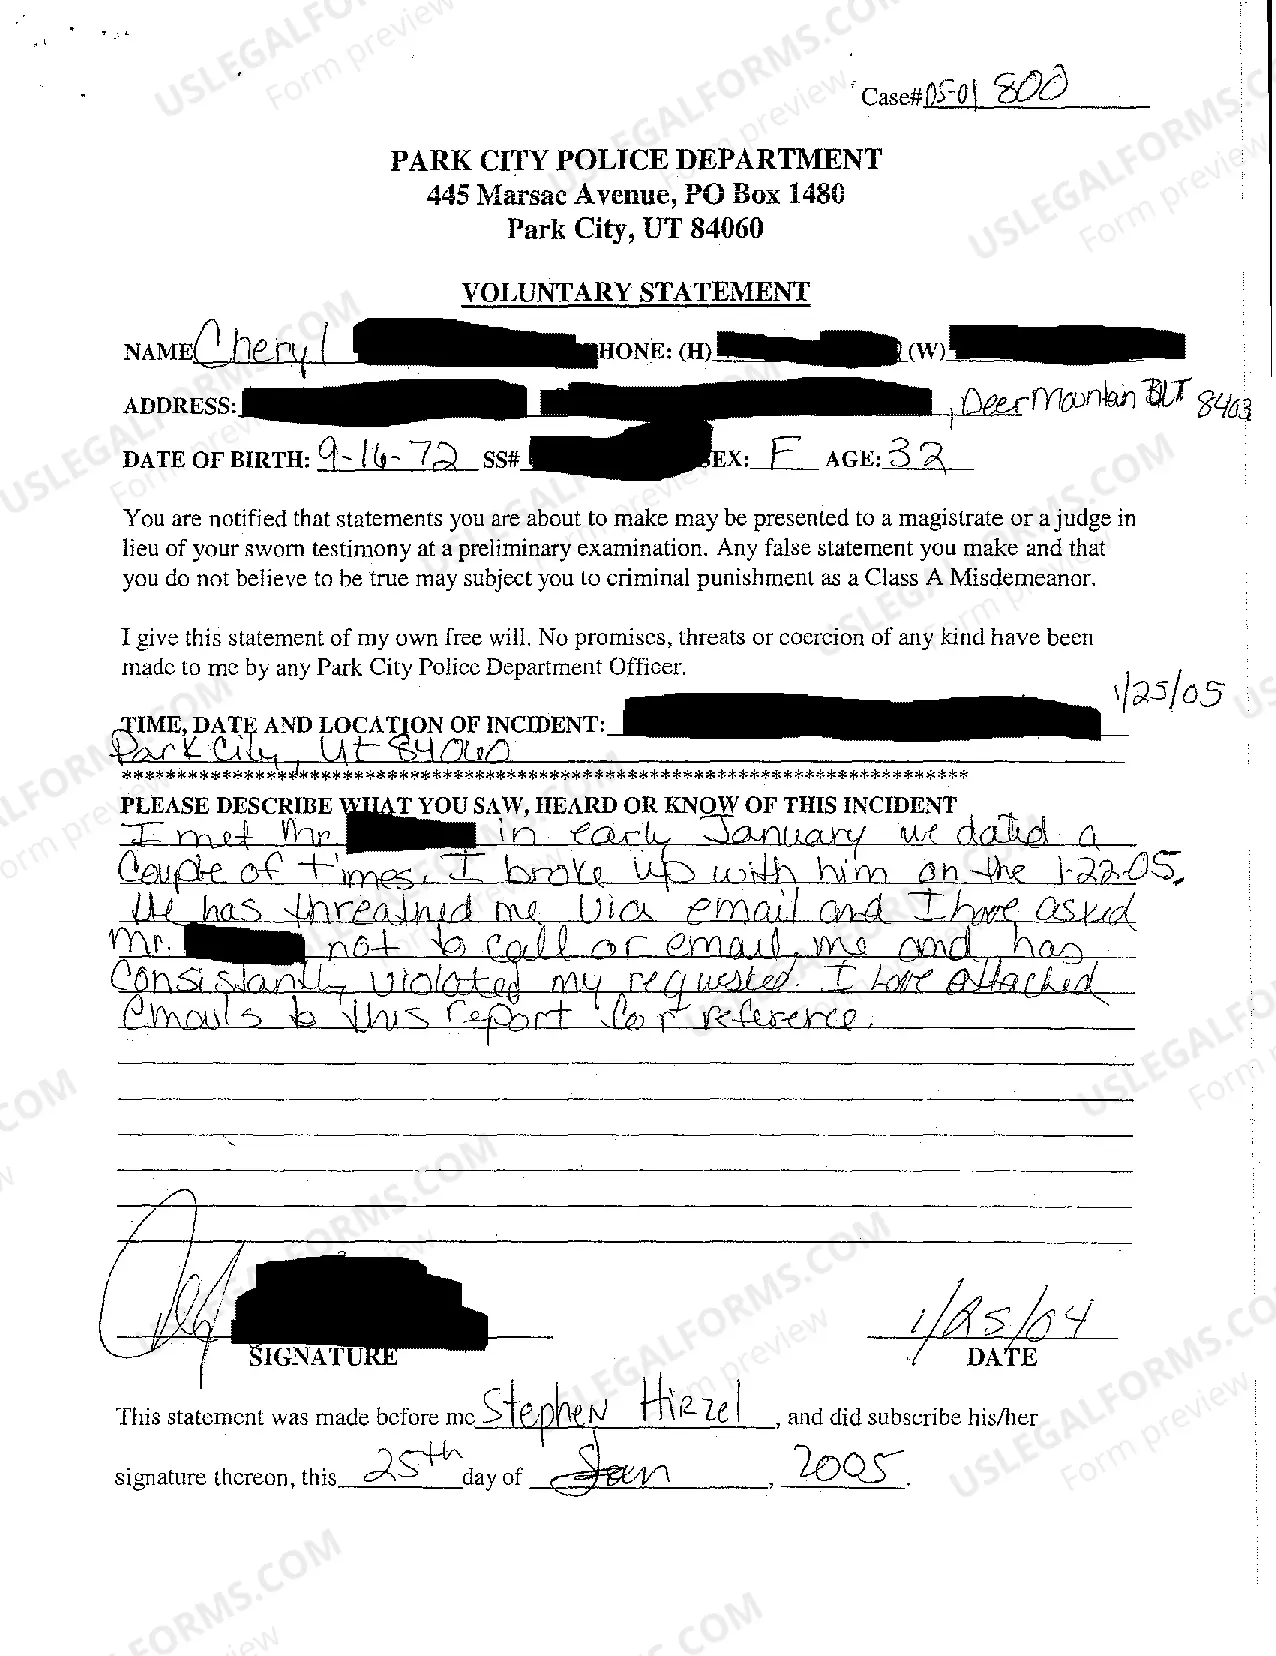 Case# 05-01 800
PARK CITY POLICE DEPARTMENT
445 Marsac Avenue, PO Box 1480
Park City, UT 84060
VOLUNTARY STATEMENT
NAME Cheryl HONE: (H) (W)
ADDRESS: , Deer Mountain UT 8403
DATE OF BIRTH: 9-16-72 SS# EX: F AGE: 32
You are notified that statements you are about to make may be presented to a magistrate or a judge in
lieu of your sworn testimony at a preliminary examination. Any false statement you make and that
you do not believe to be true may subject you to criminal punishment as a Class A Misdemeanor.
I give this statement of my own free will. No promises, threats or coercion of any kind have been
made to me by any Park City Police Department Officer.
1/25/05
TIME, DATE AND LOCATION OF INCIDENT:
Park City, Ut 84060
PLEASE DESCRIBE WHAT YOU SAW, HEARD OR KNOW OF THIS INCIDENT
I met Mr in early January we dated a
Couple of times. I broke up with him on the 1-22-05.
He has threatned me via email and I have asked
Mr. not to call or email me and has
Consistantly violated my requested. I have attached
emails to this report for reference.
1/25/04
SIGNATURE DATE
This statement was made before me Stephen Hirzel, and did subscribe his/her
signature thereon, this 25th day of Jan, 2005.
USLEGALFORMS.COM
Form preview